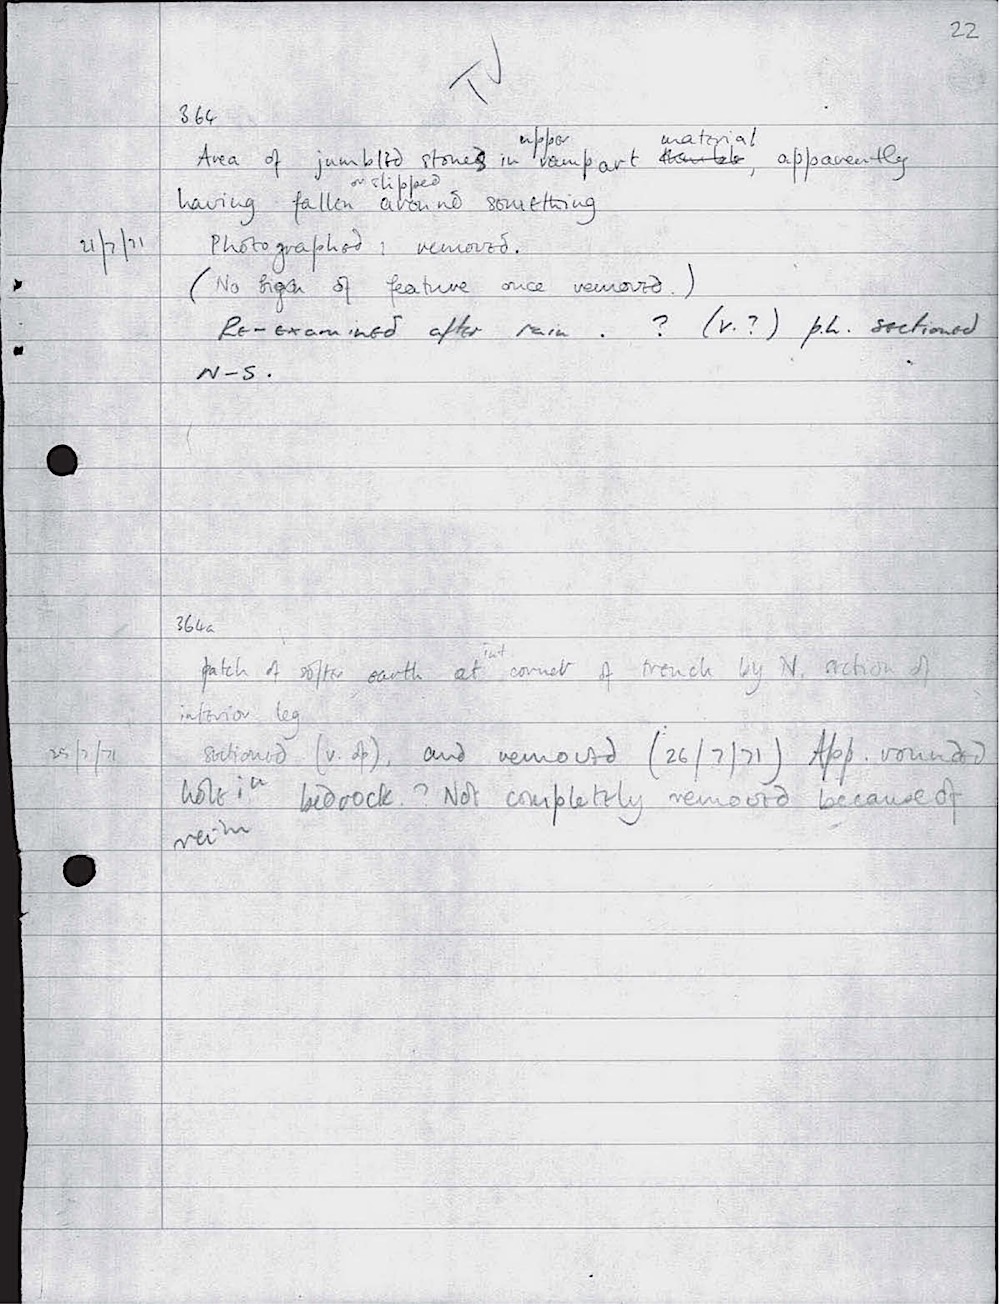 22
TV
364
Area of jumbled stones in upper rampart material, apparently
having fallen or slipped around something
21/7/71 Photographed; removed.
(No sign of feature once removed.)
Re-examined after rain. ? (v.?) p.h. sectioned
N-S.
364a
patch of softer earth at int corner of trench by N. section of
interior leg
25/7/71 sectioned (v. op). and removed (26/7/71) App. rounded
hole in bedrock. ? Not completely removed because of
rain